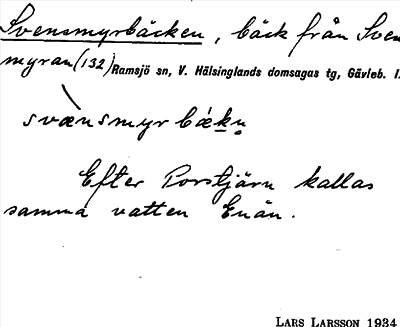 Svensmyrbäcken, bäck från Sven
myran (132) Ramsjö sn, V. Hälsinglands domsagas tg, Gävleb. l.
svænsmyrbækn
Efter Porstjärn kallas
samma vatten Enån.
LARS LARSSON 1934